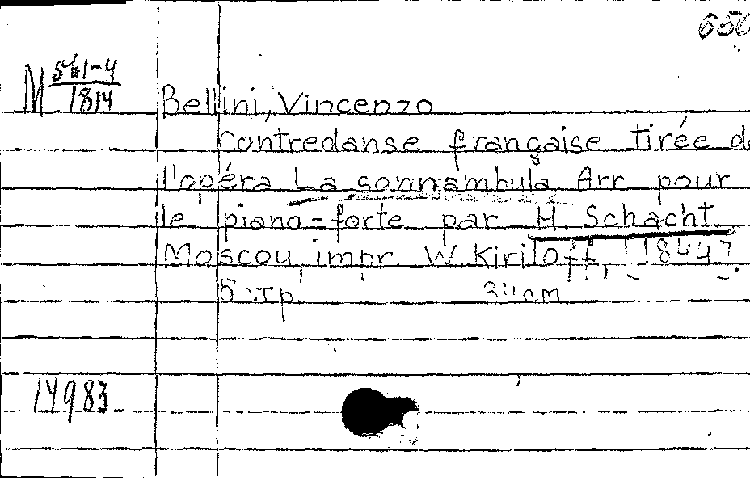 650
M 561-4/1814
Bellini, Vincenzo
Contredanse française tirée de
l'opéra La sonnambula Arr pour
le piano-forte par H Schacht
Moscou, impr W Kiriloff, [1844]
5 стр
14983